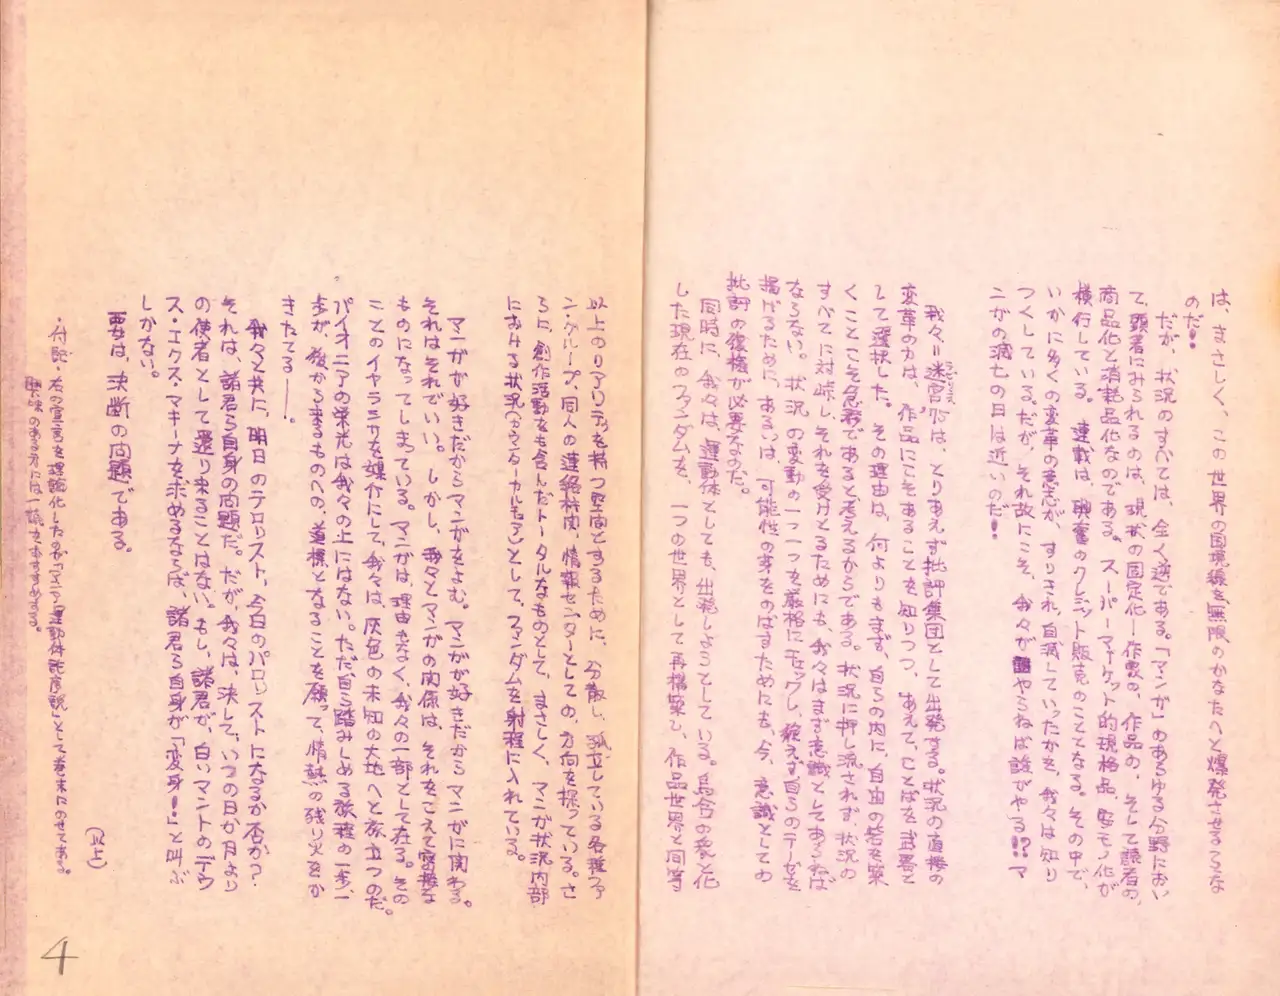 は、まさしく、この世界の国境線を無限のかなたへと爆発させるうるな
のだ!
だが、状況のすべては、全く逆である。「マンガ」のあらゆる分野におい
て、顕著にみられるのは、現状の固定化——作家の、作品の、そして読者の、
商品化と消耗品化なのである。スーパーマーケット的規格品、安モノ化が
横行している。連載は、興奮のクレジット販売のことでなる。その中で、
いかに多くの変革の意志が、すりきれ、自滅していったかを、我々は知り
つくしている。だが、それ故にこそ、我々がやらねば誰がやる!?マ
ンガの滅亡の日は近いのだ!
我々=迷宮'75は、とりあえず批評集団として出発する。状況の直接の
変革の力は、作品にこそあることを知りつつ、あえて、ことばを武器と
して選択した。その理由は、何よりもまず、自らの内に、自由の砦を築
くことこそ急務であると考えるからである。状況に押し流されず、状況の
すべてに対峙し、それを受けとるためにも、我々はまず意識としてあらねば
ならない。状況の変動の一つ一つを厳格にチェックし、絶えず自らのテーゼを
掲げるために、あるいは、可能性の芽をのばすためにも、今、意識としての
批評の復権が必要なのだ。
同時に、我々は、運動体としても、出発しようとしている。烏合の衆と化
した現在のファンダムを、一つの世界として再構築し、作品世界と同等
以上のリアリティを持つ空間とするために、分散し、孤立している各種ファ
ン・グループ、同人の連絡機関、情報センターとしての方向を探っている。さ
らに、創作活動をも含んだトータルなものとして、まさしく、マンガ状況内部
における状況(カウンターカルチュアー)として、ファンダムを射程に入れている。
マンガが好きだからマンガをよむ。マンガが好きだからマンガに関わる。
それはそれでいい。しかし、我々とマンガの関係は、それをこえて密接な
ものになってしまっている。マンガは、理由もなく、我々の一部として在る。その
ことのイヤラシサを媒介にして、我々は、灰色の未知の大地へと旅立つのだ。
パイオニアの栄光は我々の上にはない。ただ自ら踏みしめる旅程の一歩、一
歩が、後から来るものへの、道標となることを願って、情熱の残り火をか
きたてる——。
我々と共に、明日のテロリスト、今日のパロリストになるか否か?
それは、諸君ら自身の問題だ。だが、我々は、決して、いつの日か月より
の使者として還り来ることはない。もし、諸君が、白いマントのデウ
ス・エクス・マキーナを求めるならば、諸君ら自身が「変身!」と叫ぶ
しかない。
要は、決断の問題である。
(以上)
・付記・右の宣言を理論化したのが「マニア運動体論序説」として巻末にのせてある。
興味のある方には一読をおすすめする。
4